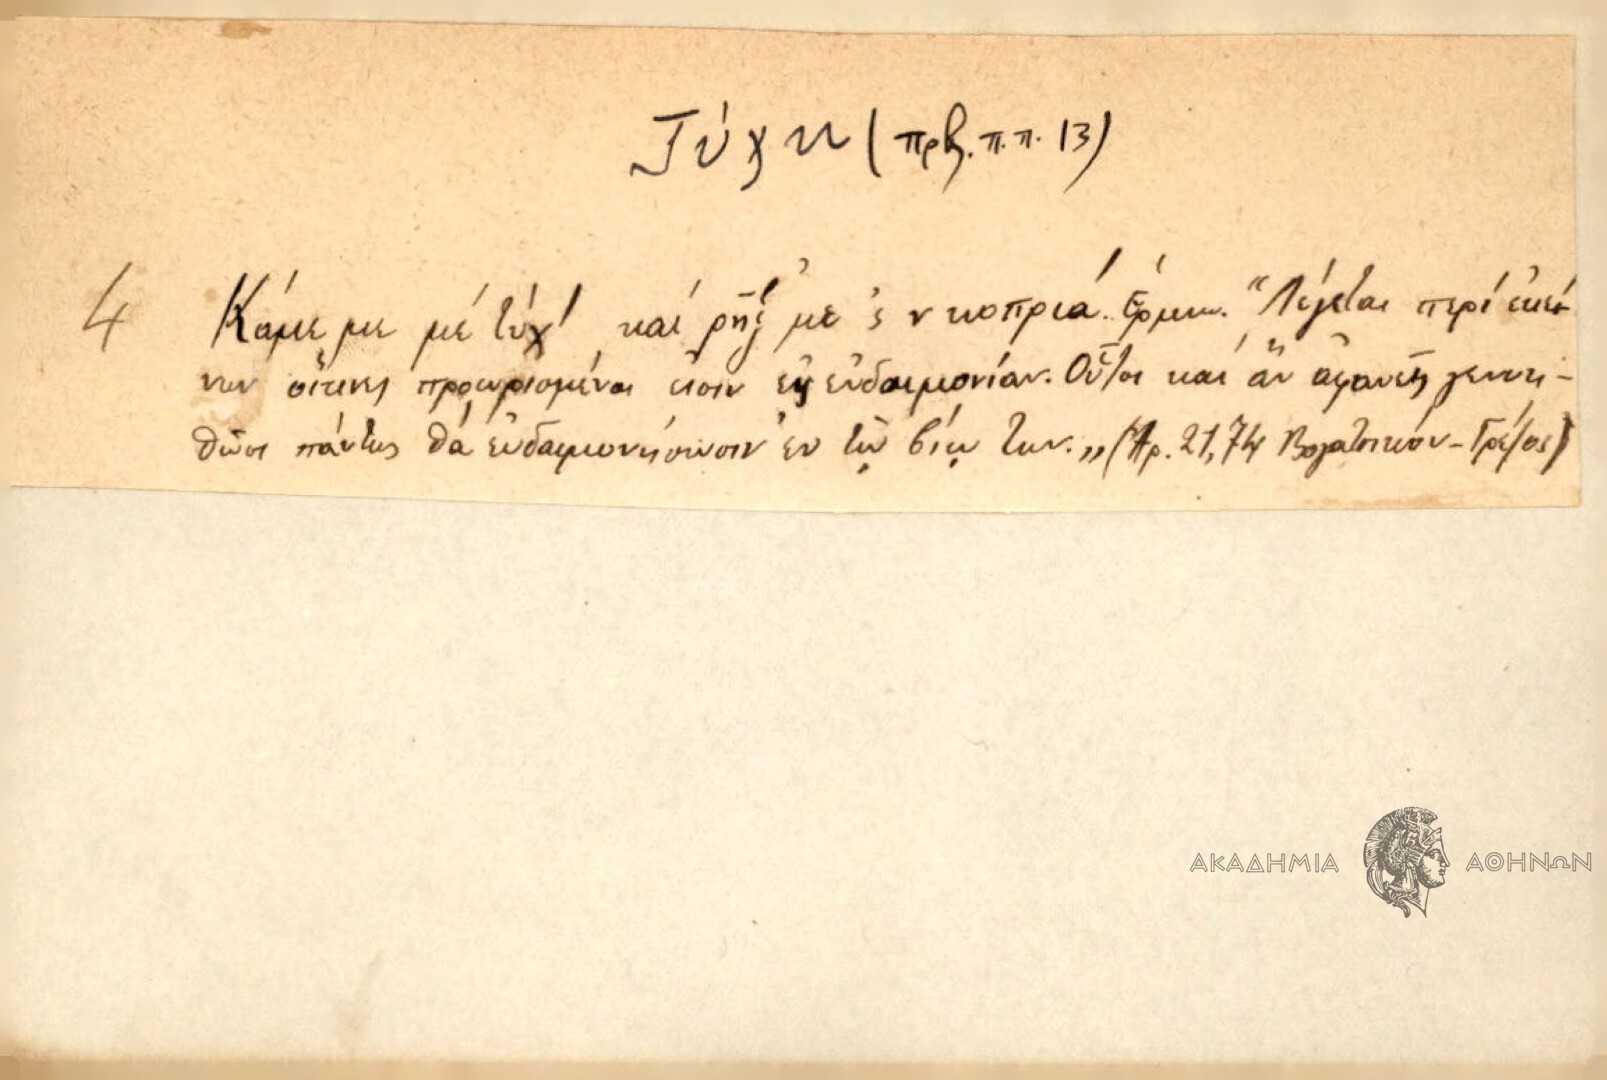 Τύχη (πρβ. π.π. 13)
4 Κάμε με μέ τύχ' καί ρῆξ' με 'ς ν κοπριά. Ἑρμην. "Λέγεται περί ἐκεί
νων οἵτινες προωρισμένοι εἰσιν εἰς εὐδαιμονίαν. Οὗτοι καί ἄν ἀφανεῖς γεννη-
θῶσι πάντως θά εὐδαιμονήσωσιν ἐν τῷ βίῳ των.,, (Ἀρ. 21,74
ΑΚΑΔΗΜΙΑ ΑΘΗΝΩΝ